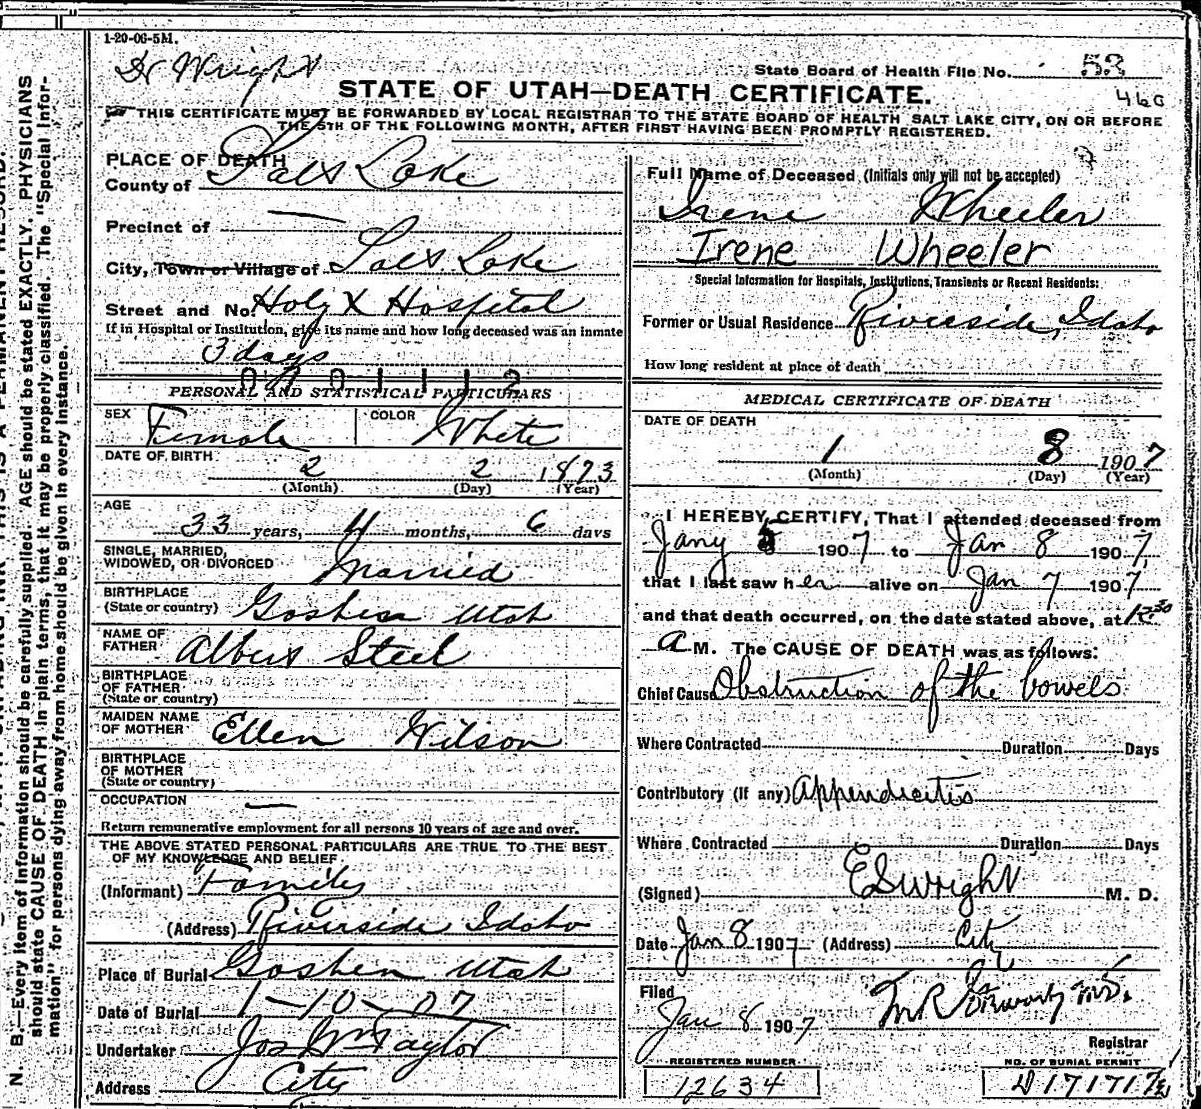 1-20-06-5M.
Dr Wright
State Board of Health File No. 52
460
STATE OF UTAH—DEATH CERTIFICATE.
THIS CERTIFICATE MUST BE FORWARDED BY LOCAL REGISTRAR TO THE STATE BOARD OF HEALTH SALT LAKE CITY, ON OR BEFORE
THE 5TH OF THE FOLLOWING MONTH, AFTER FIRST HAVING BEEN PROMPTLY REGISTERED.
PLACE OF DEATH
County of Salt Lake
Precinct of —
City, Town or Village of Salt Lake
Street and No. Holy X Hospital
If in Hospital or Institution, give its name and how long deceased was an inmate
3 days
PERSONAL AND STATISTICAL PARTICULARS
SEX Female COLOR White
DATE OF BIRTH
2 2 1873
(Month) (Day) (Year)
AGE
33 years, 11 months, 6 days
SINGLE, MARRIED,
WIDOWED, OR DIVORCED Married
BIRTHPLACE
(State or country) Goshen Utah
NAME OF
FATHER Albert Steel
BIRTHPLACE
OF FATHER
(State or country)
MAIDEN NAME
OF MOTHER Ellen Wilson
BIRTHPLACE
OF MOTHER
(State or country)
OCCUPATION —
Return remunerative employment for all persons 10 years of age and over.
THE ABOVE STATED PERSONAL PARTICULARS ARE TRUE TO THE BEST
OF MY KNOWLEDGE AND BELIEF
(Informant) Family
(Address) Riverside Idaho
Place of Burial Goshen Utah
Date of Burial 1-10-07
Undertaker Jos Wm Taylor
Address City
Full Name of Deceased (Initials only will not be accepted)
Irene Wheeler
Irene Wheeler
Special Information for Hospitals, Institutions, Transients or Recent Residents:
Former or Usual Residence Riverside, Idaho
How long resident at place of death
MEDICAL CERTIFICATE OF DEATH
DATE OF DEATH
1 8 1907
(Month) (Day) (Year)
I HEREBY CERTIFY, That I attended deceased from
Jany 5 1907 to Jan 8 1907,
that I last saw her alive on Jan 7 1907,
and that death occurred, on the date stated above, at 12 30
A M. The CAUSE OF DEATH was as follows:
Chief Cause Obstruction of the bowels
Where Contracted Duration Days
Contributory (If any) Appendicitis
Where Contracted Duration Days
(Signed) E S Wright M. D.
Date Jan 8 1907 (Address) City
Filed
Jan 8 1907
Registrar
REGISTERED NUMBER
12634
NO. OF BURIAL PERMIT
N. B.—Every item of information should be carefully supplied. AGE should be stated EXACTLY. PHYSICIANS
should state CAUSE OF DEATH in plain terms, that it may be properly classified. The "Special Infor-
mation" for persons dying away from home should be given in every instance.